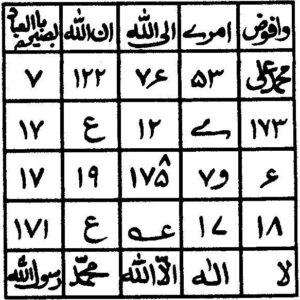 وافوض امرے الى الله ان الله بصير بالعباد
محمد علی ۵۳ ۷۶ ۱۲۲ ۷
۱۷۳ ے ۱۲ ع ۱۷
۶ و۷ ۱۷۵ ۱۹ ۱۷
۱۸ ۱۷ ع ۱۷۱
لا اله الّا الله محمّد رسول الله